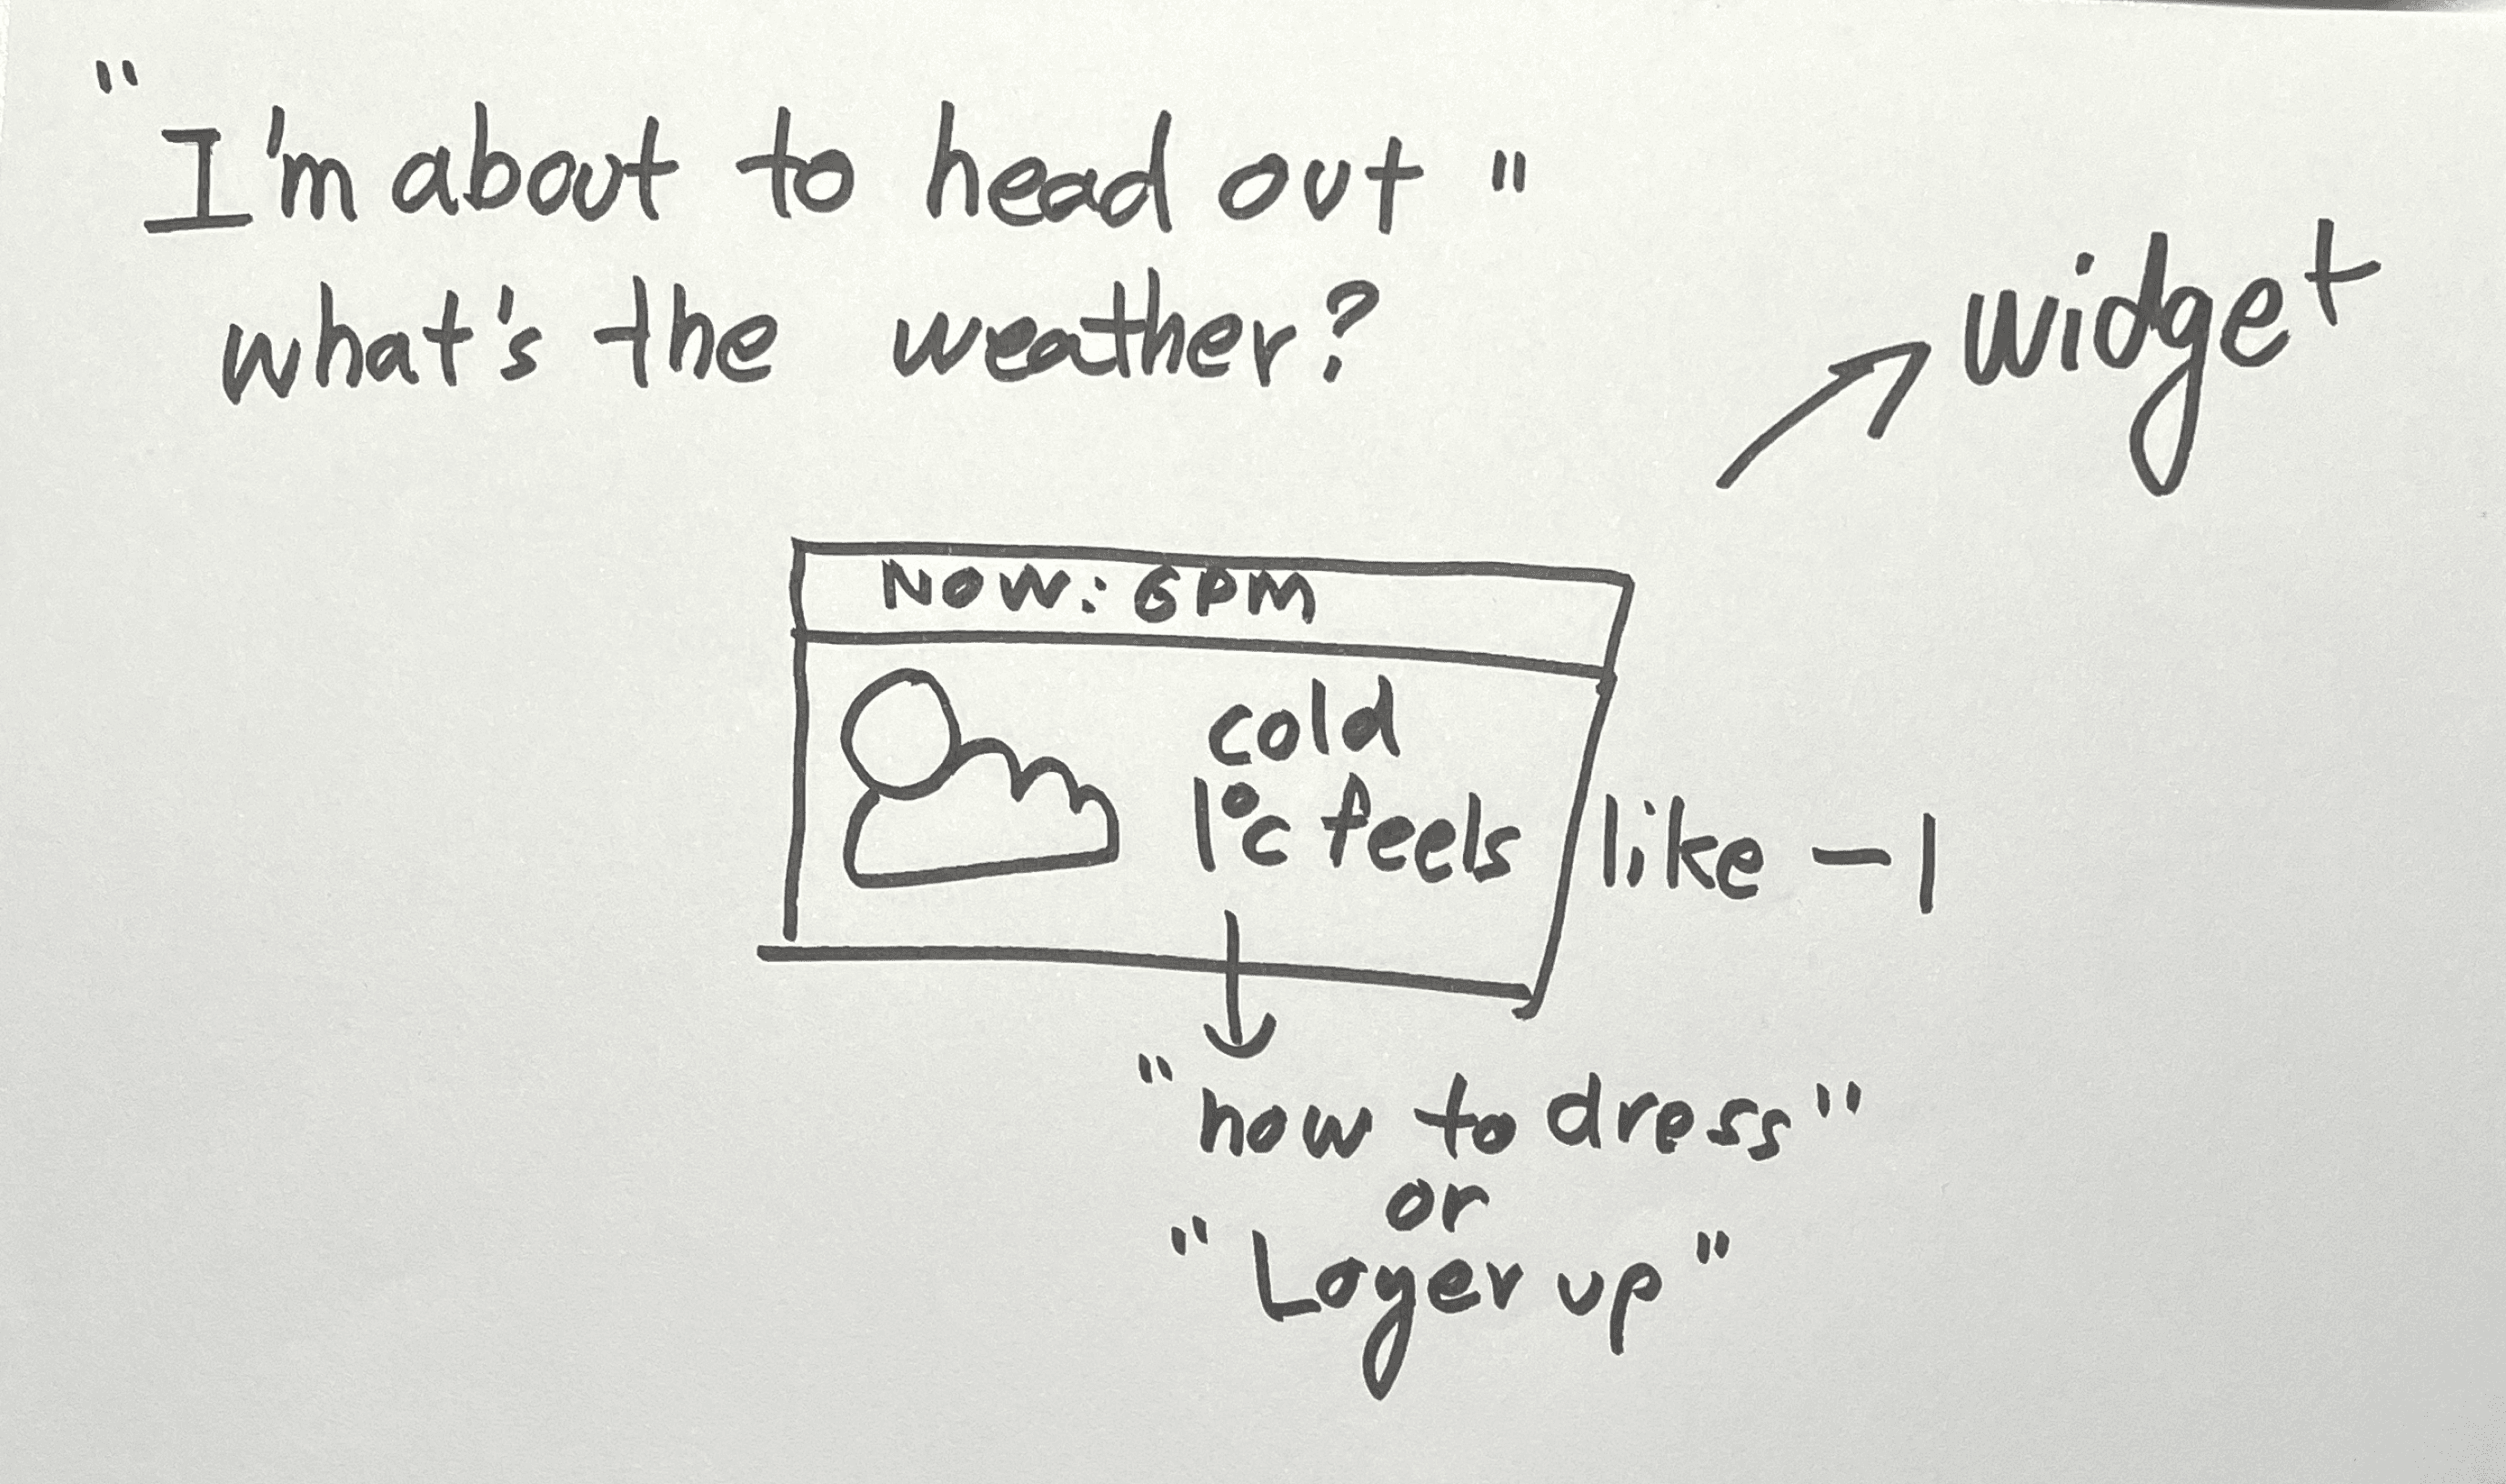 "I'm about to head out"
what's the weather?
widget
NOW: 6PM
cold
1°c feels like -1
"how to dress"
or
"Layer up"